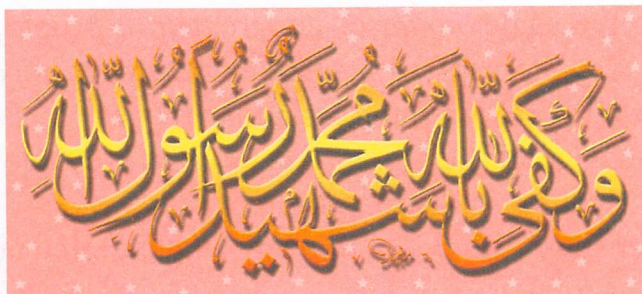 وَكَفَىٰ بِاللَّهِ شَهِيدًا مُحَمَّدٌ رَسُولُ اللَّهِ